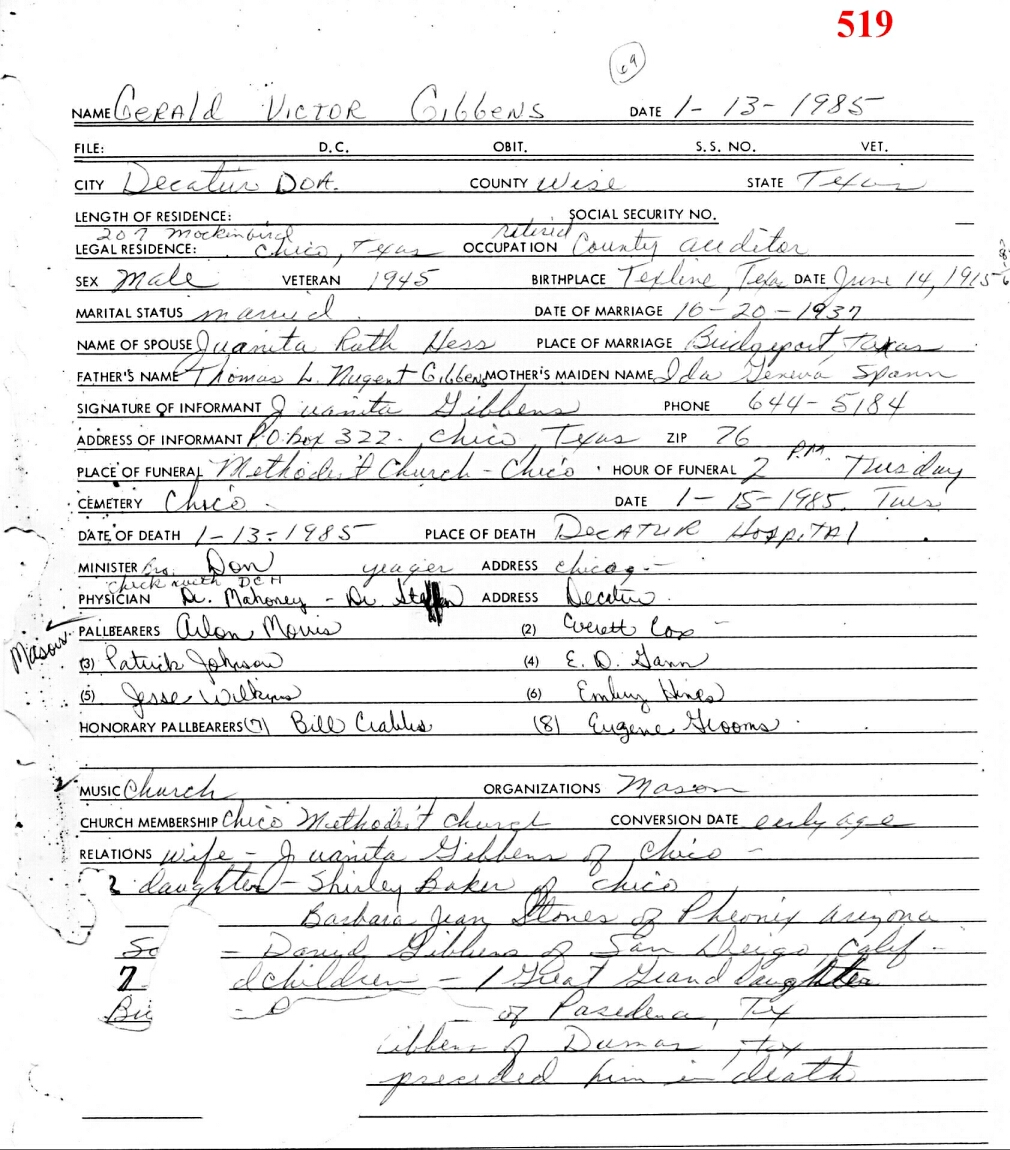 519
69
NAME Gerald Victor Gibbens DATE 1-13-1985
FILE: D.C. OBIT. S.S. NO. VET.
CITY Decatur DOA. COUNTY Wise STATE Texas
LENGTH OF RESIDENCE: SOCIAL SECURITY NO.
207 Mockinbird retired
LEGAL RESIDENCE: Chico, Texas OCCUPATION County auditor
SEX Male VETERAN 1945 BIRTHPLACE Texline, Texa DATE June 14, 1915
MARITAL STATUS married. DATE OF MARRIAGE 10-20-1937
NAME OF SPOUSE Juanita Ruth Hess PLACE OF MARRIAGE Bridgeport, Texas
FATHER'S NAME Thomas L. Nugent Gibbens MOTHER'S MAIDEN NAME Ida Geneva Spann
SIGNATURE OF INFORMANT Juanita Gibbens PHONE 644-5184
ADDRESS OF INFORMANT P.O. Box 322-, Chico, Texas ZIP 76
PLACE OF FUNERAL Methodist Church - Chico HOUR OF FUNERAL 2 P.M. Tuesday
CEMETERY Chico DATE 1-15-1985, Tues
DATE OF DEATH 1-13-1985 PLACE OF DEATH Decatur Hospital
MINISTER bro. Don yeager ADDRESS chicog.-
check with DCH
PHYSICIAN Dr. Mahoney - Dr. ADDRESS Decatur
Masons
PALLBEARERS Arlon Morris (2) Everett Cox
(3) Patrick Johnson (4) E. D. Gann
(5) Jesse Wilkins (6) Embry Hines
HONORARY PALLBEARERS (7) Bill Crabbs (8) Eugene Grooms
MUSIC Church ORGANIZATIONS Mason
CHURCH MEMBERSHIP Chico Methodist Church CONVERSION DATE early age
RELATIONS wife - Juanita Gibbens of Chico -
2 daughters - Shirley Baker of Chico
Barbara Jean Stones of Pheonix Arizona
So - David Gibbens of San Deigo, Calif.
7 dchildren - 1 Great Grand daughter
- of Pasedena, Tx
ibbens of Dumas, Tex
preceded him in death